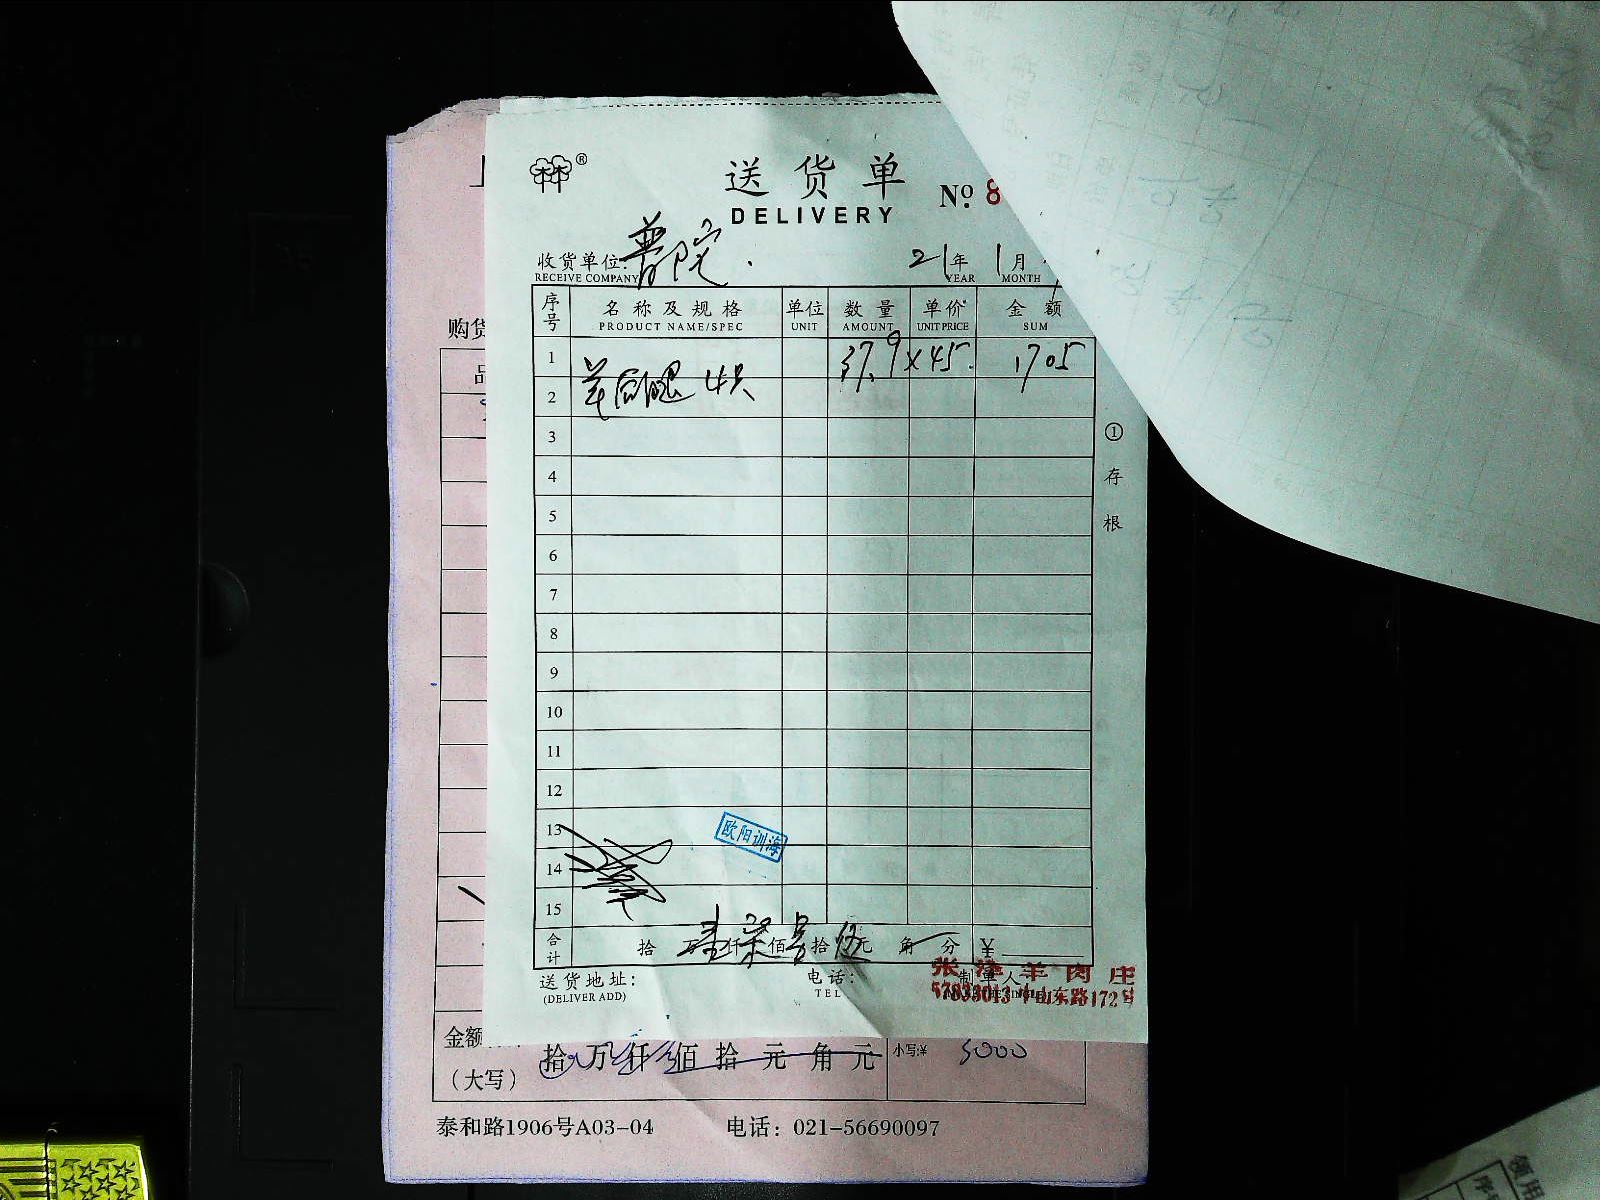 送货单
DELIVERY
№ 8
收货单位: 普陀
RECEIVE COMPANY
21年 1月
YEAR MONTH
序号 名称及规格 单位 数量 单价 金额
PRODUCT NAME/SPEC UNIT AMOUNT UNIT PRICE SUM
1 37.9 ×45 1705
2 羊后腿 4只
3
4
5
6
7
8
9
10
11
12
13
欧阳训海
14
15
合计 拾 万 壹仟 柒佰 零拾 伍元 角 分 ¥
送货地址: 电话: 制单人
(DELIVER ADD) TEL
张泽羊肉庄
57833013 中山东路172号
① 存根
购货
金额
(大写)
拾 万 仟 佰 拾 元 角 元 小写:¥ 5000
泰和路1906号A03-04 电话: 021-56690097